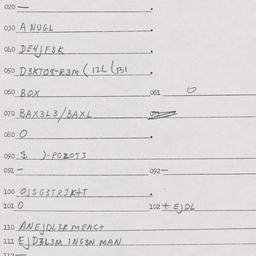 020 —
030 A NUGL
040 DE4JF3K
050 D3KTO8-R3M ( 12L (131
060 BOX 061 0
070 BAX3L3/BAXL
080 0
090 $ )-POZOT3
091 - 092 -
100 0JSG3TR2K+T
101 0 102 ± EJDL
110 ANEJDL3R MENC+
111 EJD3L3M INGEN MAN